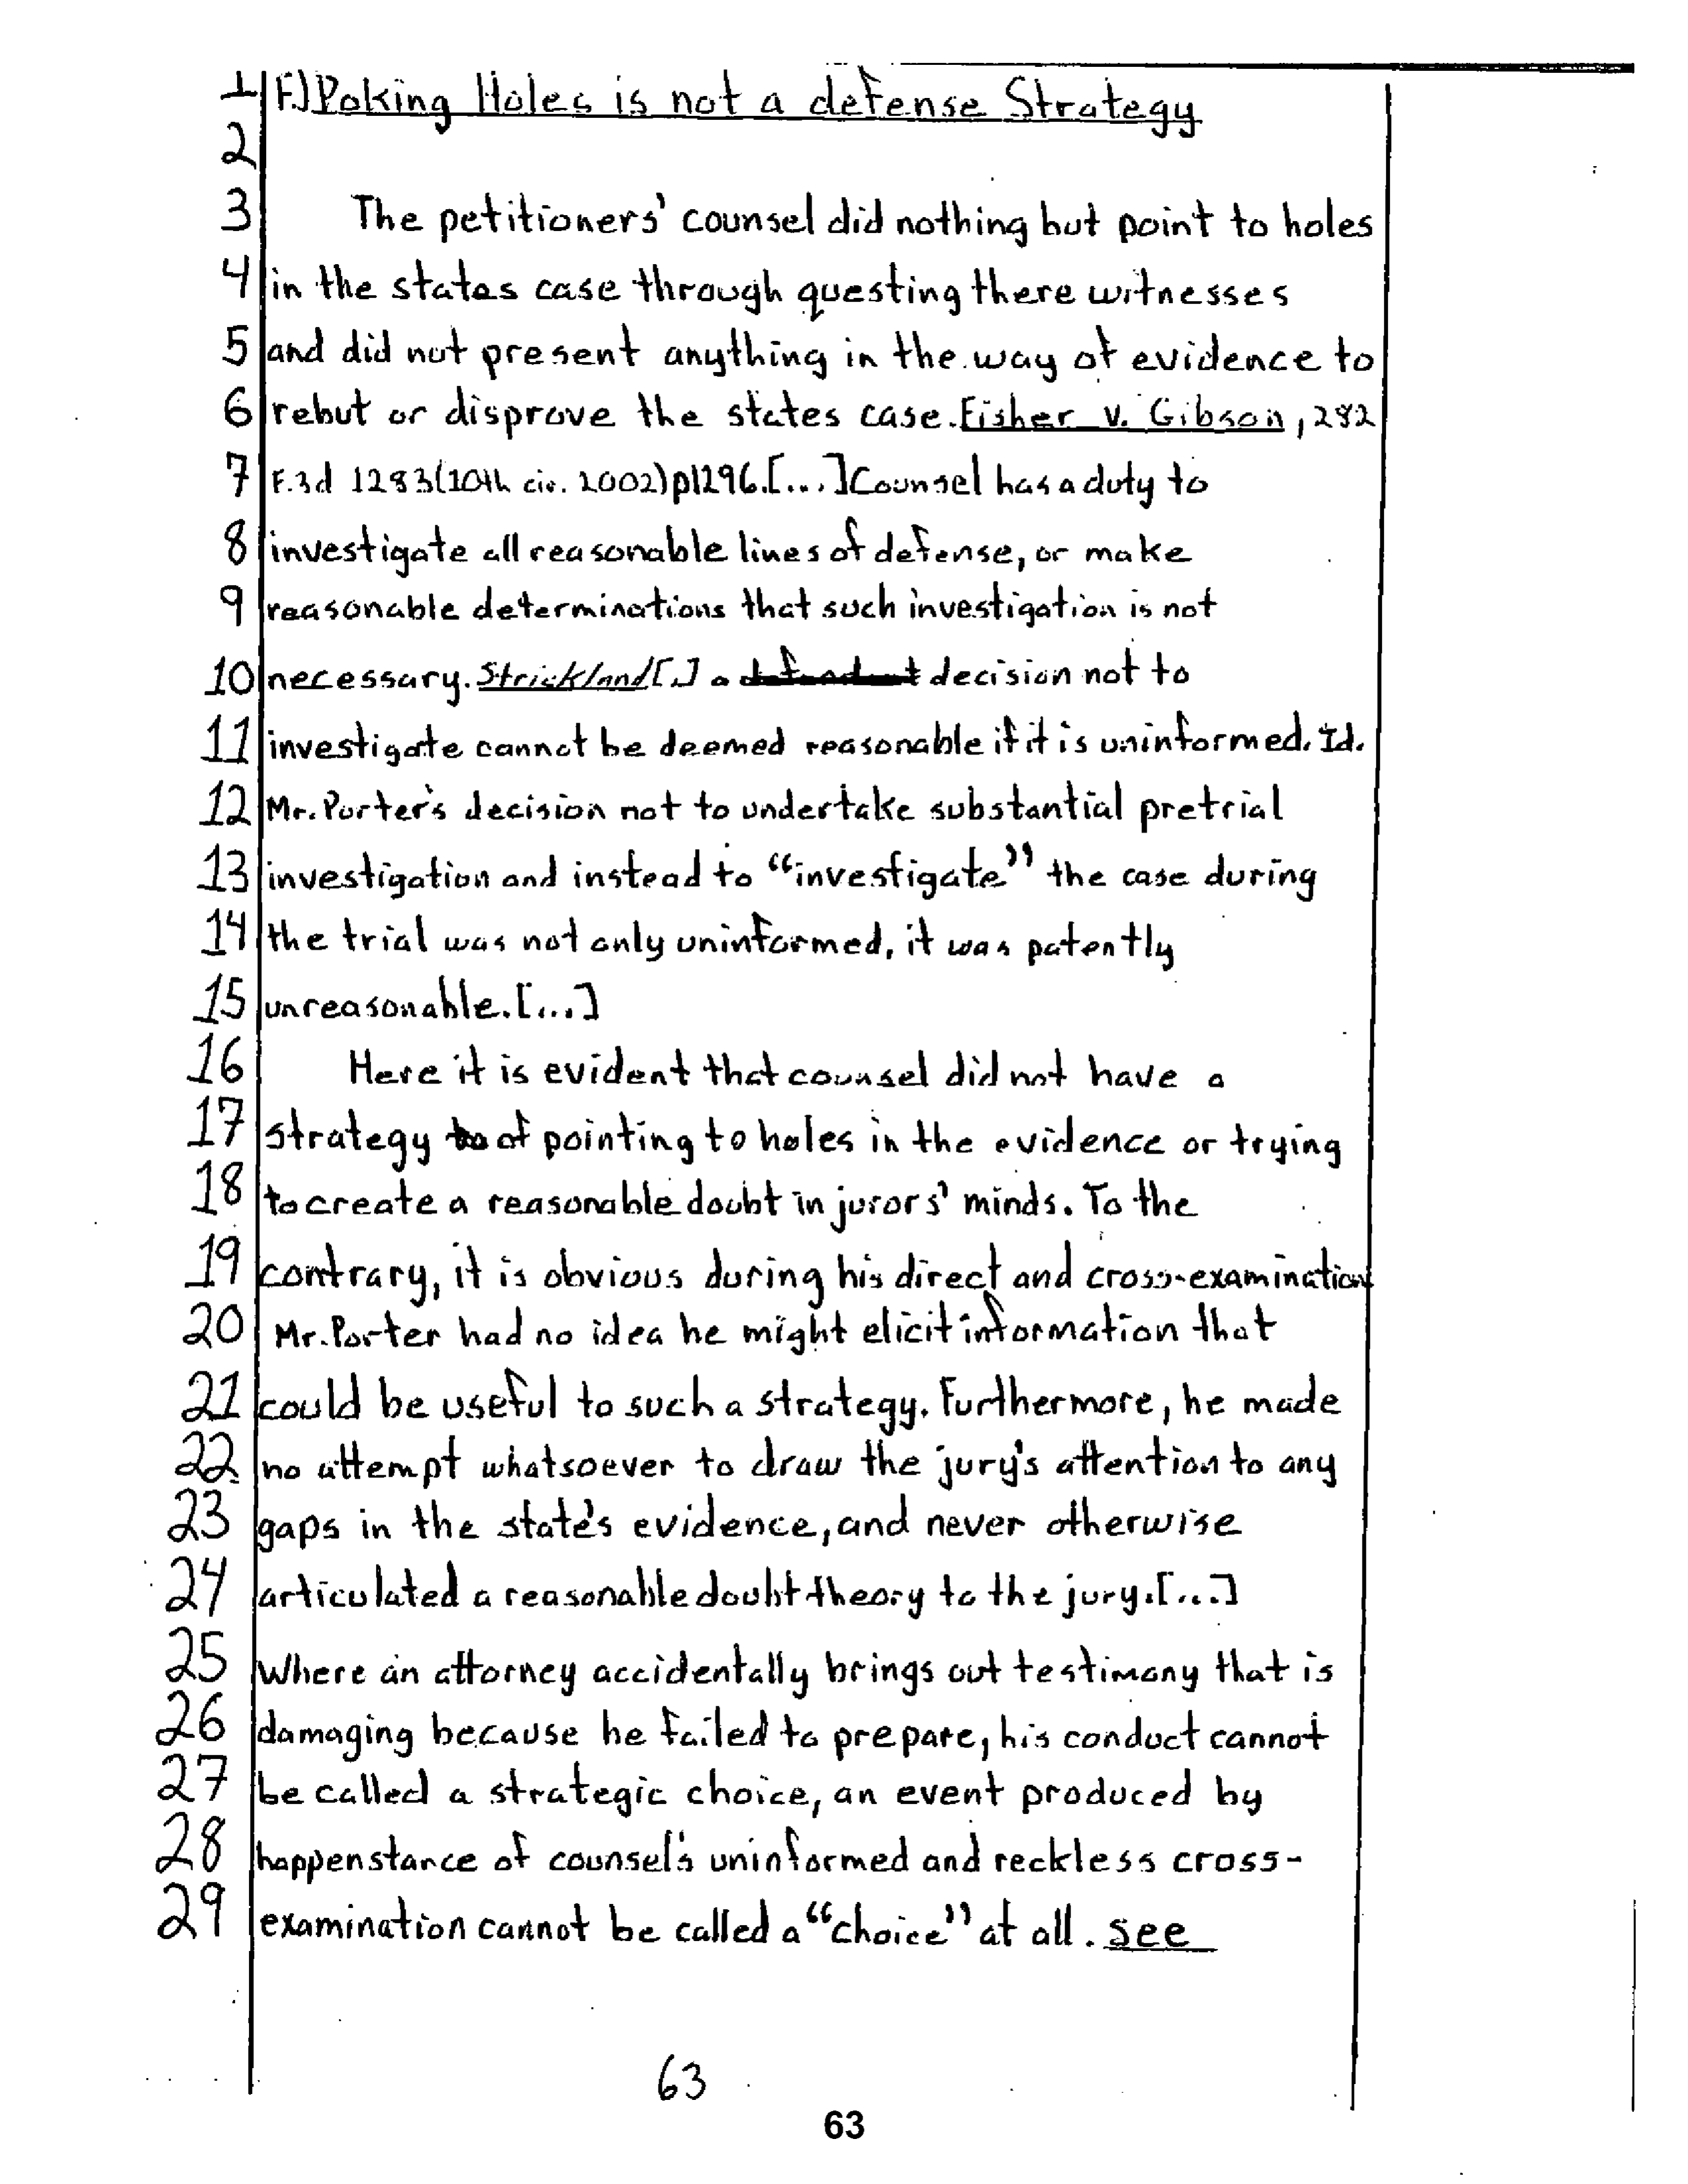 1 F.) Poking Holes is not a defense Strategy
2
3 The petitioners' counsel did nothing but point to holes
4 in the states case through questing there witnesses
5 and did not present anything in the way of evidence to
6 rebut or disprove the states case. Fisher v. Gibson, 282
7 F.3d 1283(10th cir. 2002)p1296.[...]Counsel has a duty to
8 investigate all reasonable lines of defense, or make
9 reasonable determinations that such investigation is not
10 necessary. Strickland[.] a decision not to
11 investigate cannot be deemed reasonable if it is uninformed. Id.
12 Mr. Porter's decision not to undertake substantial pretrial
13 investigation and instead to "investigate" the case during
14 the trial was not only uninformed, it was patently
15 unreasonable.[...]
16 Here it is evident that counsel did not have a
17 strategy of pointing to holes in the evidence or trying
18 to create a reasonable doubt in jurors' minds. To the
19 contrary, it is obvious during his direct and cross-examination
20 Mr. Porter had no idea he might elicit information that
21 could be useful to such a strategy. Furthermore, he made
22 no attempt whatsoever to draw the jury's attention to any
23 gaps in the state's evidence, and never otherwise
24 articulated a reasonable doubt theory to the jury.[...]
25 Where an attorney accidentally brings out testimony that is
26 damaging because he failed to prepare, his conduct cannot
27 be called a strategic choice, an event produced by
28 happenstance of counsel's uninformed and reckless cross-
29 examination cannot be called a "choice" at all. see
63
63